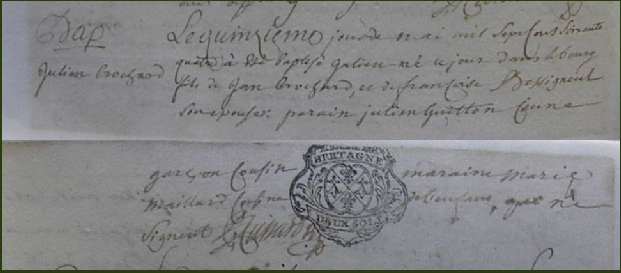 Bap
Julien Brochard
Le quinzieme jour de mai mil sept cent soixante
quatre à été baptisé Julien né ce jour dans le bourg
fils de Jan Brochard, et de françoise
son epouse: parain julien Guitton jeune
garçon Cousin maraine marie
BRETAGNE
Maillard Cousine de l'enfant, qui ne
DEUX SOLS
signent